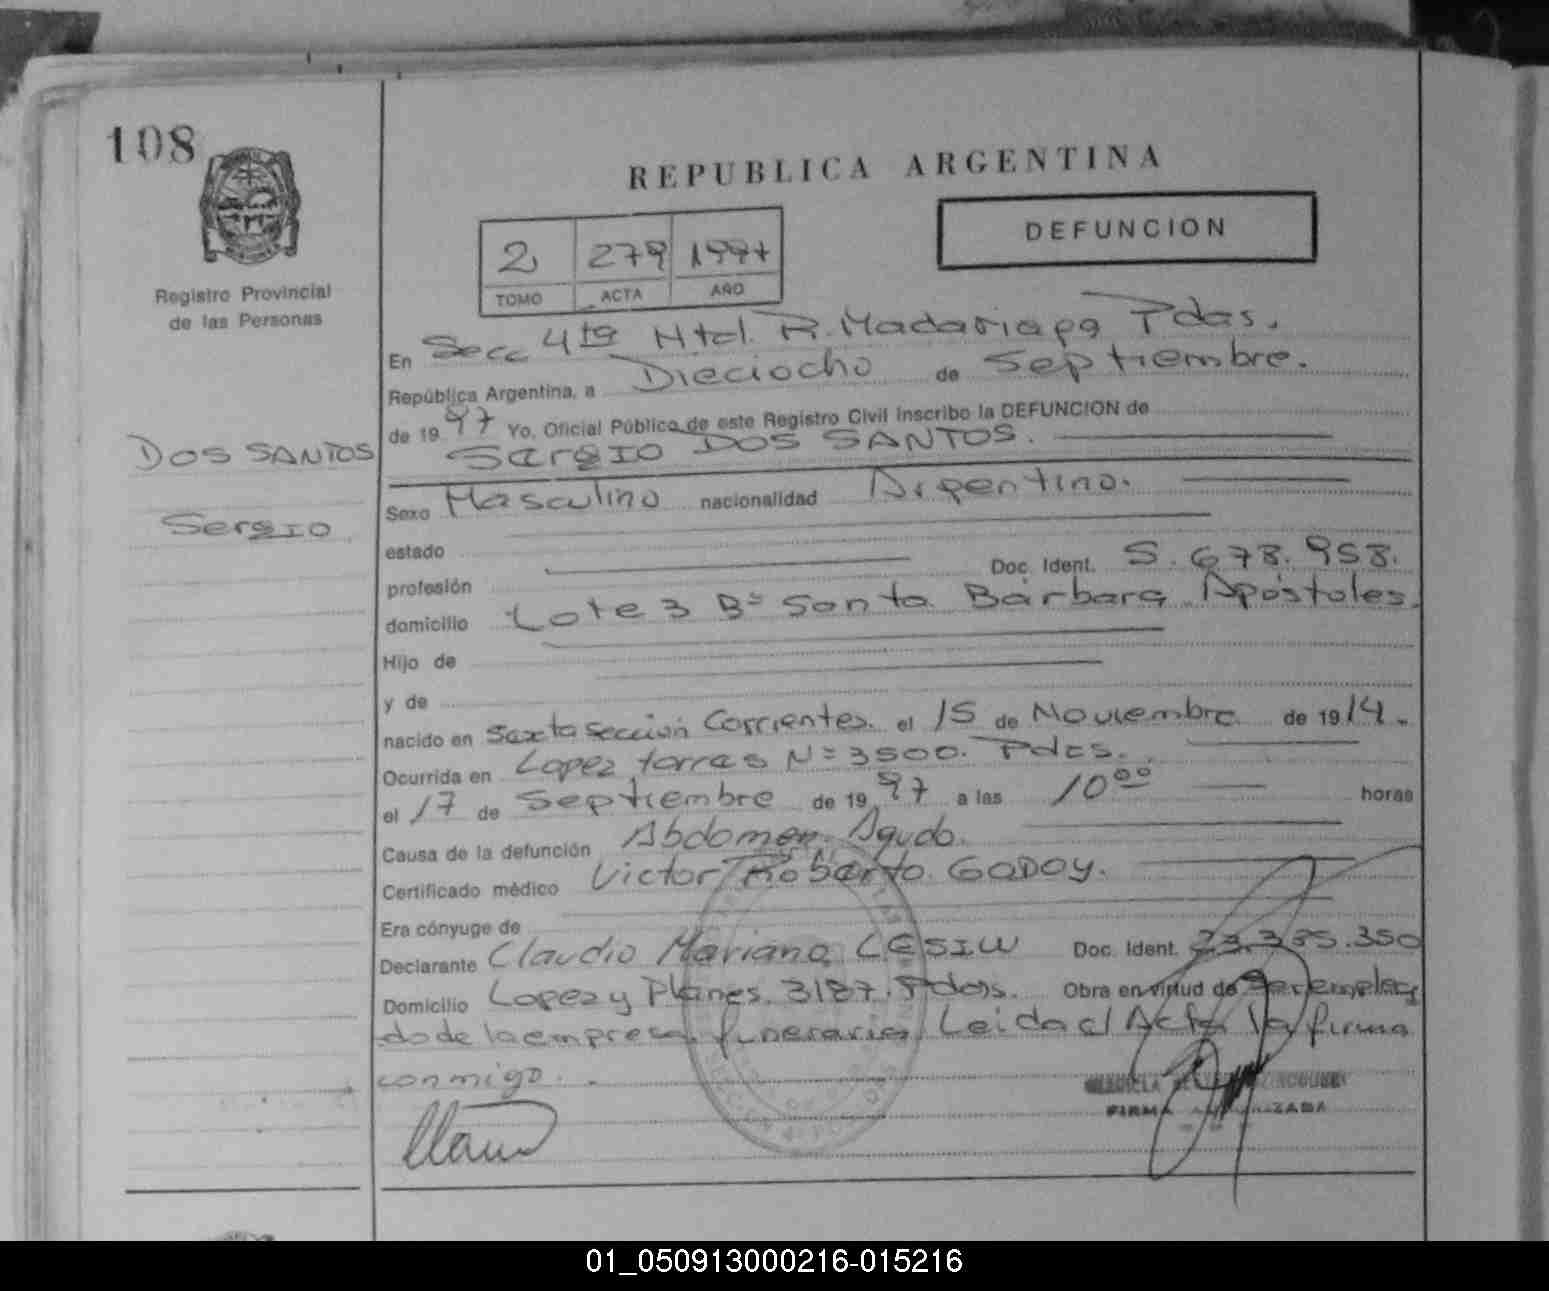 108
REPUBLICA ARGENTINA
DEFUNCION
2 279 1997
TOMO ACTA AÑO
Registro Provincial
de las Personas
En Secc 4ta Htal. R. Madariaga Pdas.
República Argentina, a Dieciocho de Septiembre.
de 19 97 Yo, Oficial Público de este Registro Civil inscribo la DEFUNCION de
DOS SANTOS
Sergio
Sergio DOS SANTOS.
Sexo Masculino nacionalidad Argentino.
estado
profesión Doc. Ident. 5.678.958.
domicilio Lote 3 Bº Santa Bárbara Apóstoles.
Hijo de
y de
nacido en Sexta sección Corrientes. el 15 de Noviembre de 19 14.
Ocurrida en Lopez torres Nº 3500. Pdas.
el 17 de Septiembre de 19 97 a las 10 00 horas
Causa de la defunción Abdomen Agudo.
Certificado médico Victor Roberto GODOY.
Era cónyuge de
Declarante Claudio Mariano CESIW Doc. Ident. 350
Domicilio Lopez y Planes 3187. Pdas. Obra en virtud de ser emplea
do de la empresa funeraria Leida el Acta la firma
conmigo.
FIRMA AUTORIZADA
01_050913000216-015216